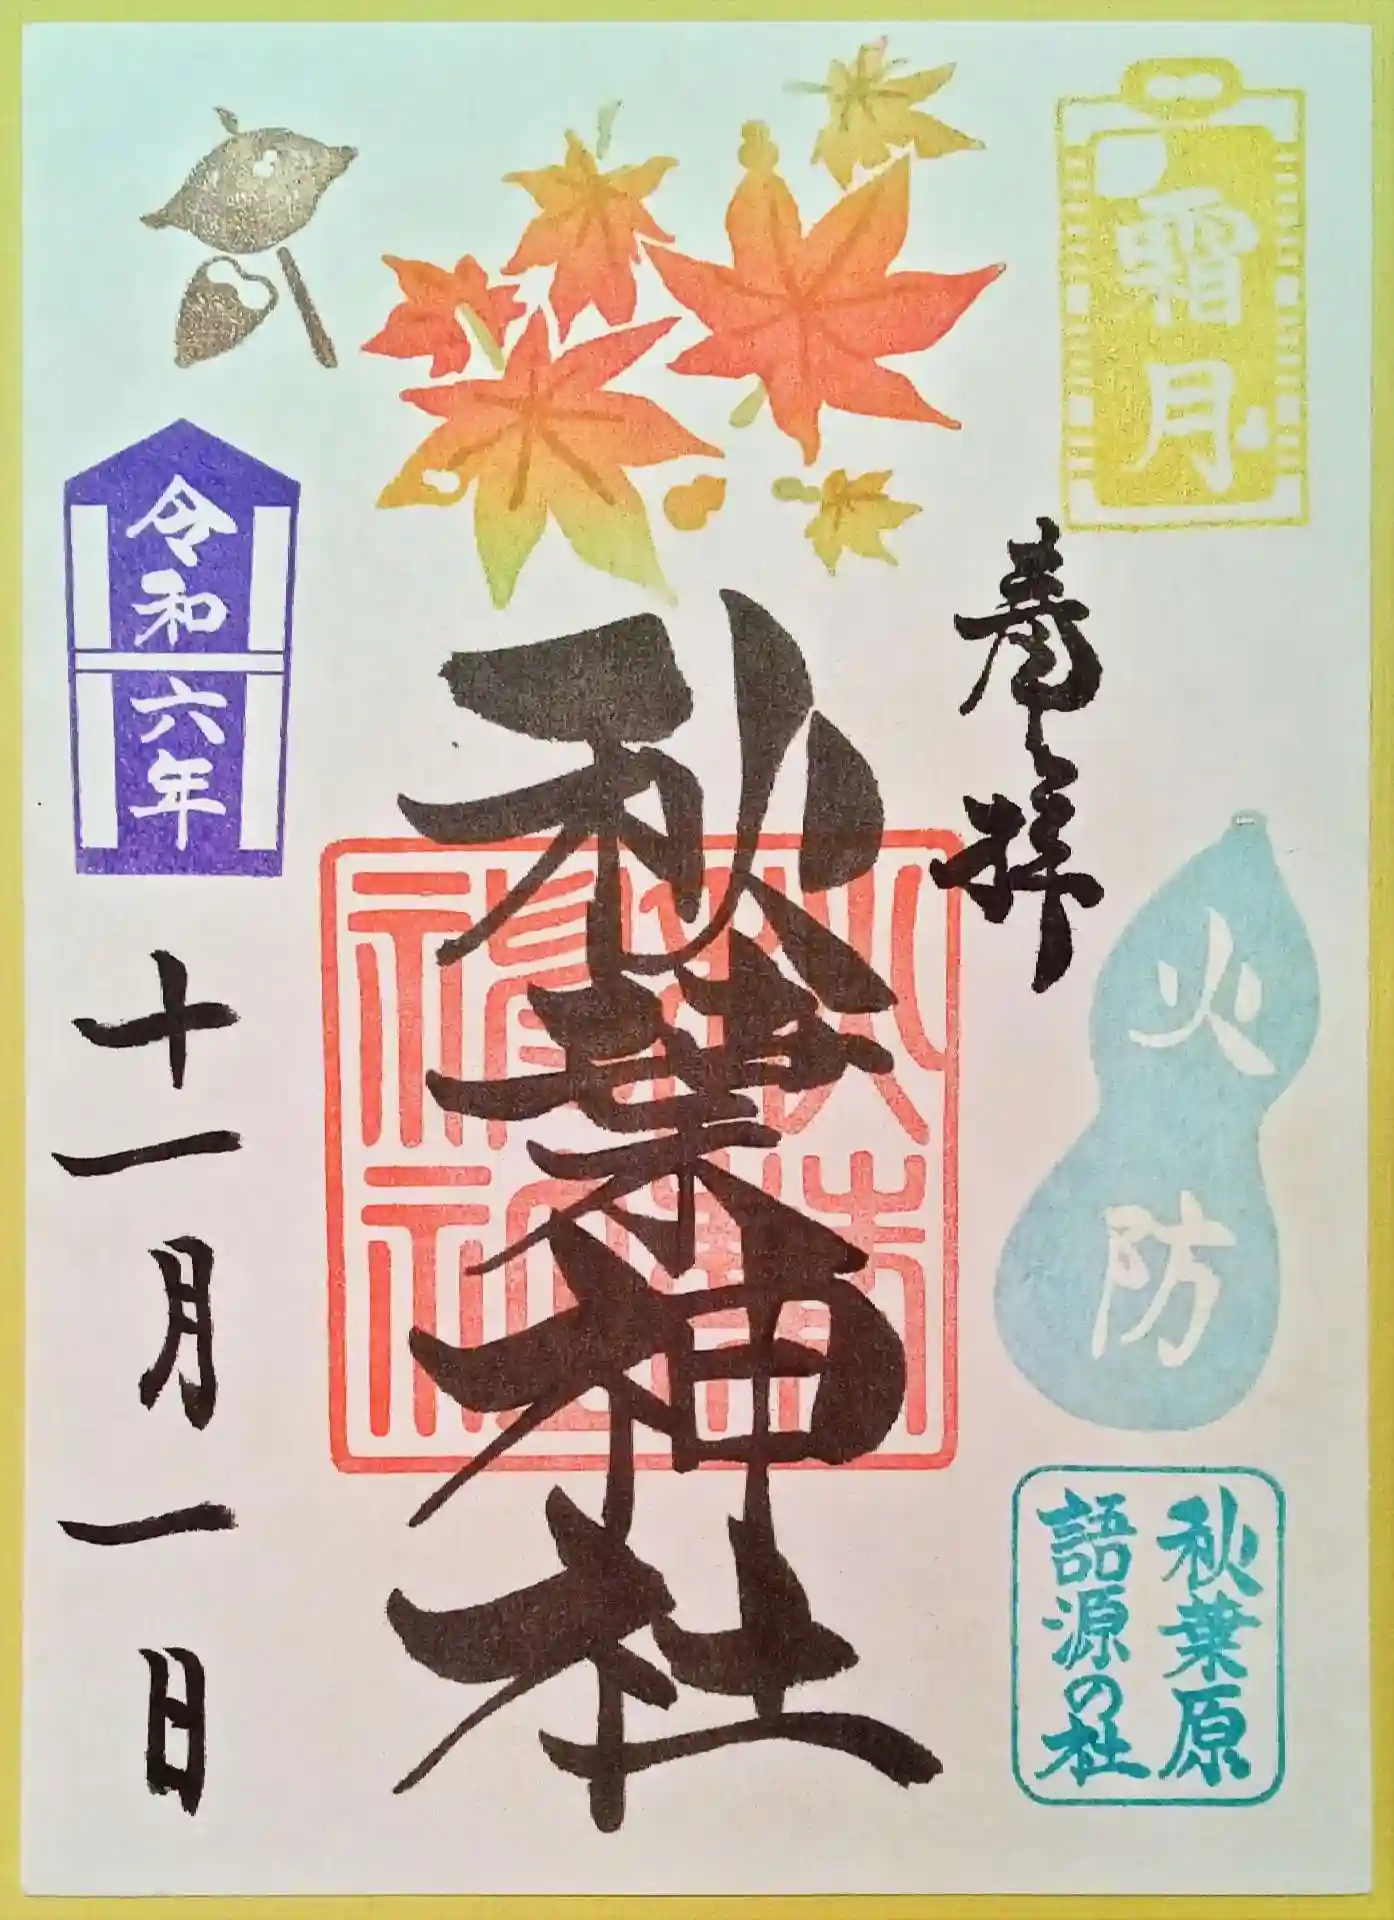 霜月
奉拝
火防
秋葉原
語源の杜
秋葉神社
秋葉
神社
令和六年
十一月一日